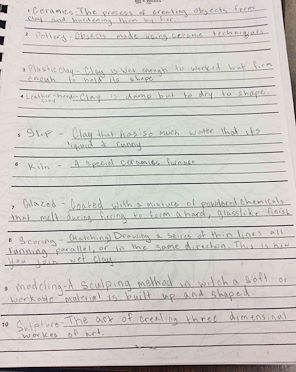 1 Ceramics-The process of creating objects form
clay and hardening them by fir
2 Pottery-Objects made using ceramic techniques
3 Plastic Clay-Clay is Wet enough to worked but firm
enouh to hold its shape
4 Leather-hard-Clay is damp but to dry to shape.
clay
5 Slip - Clay that has so much water that its
liquid & runny
6 Kiln - A special ceramics furnace
7 Glazed - Coated with a mixture of powdered chemicals
that melt during firing to form a hard, glasslike finish
8 Scoring-(Hatching) Drawing a seires of thin lines all
running parallel, or in the same direction. This is how
you join wet clay
9 Modeling-A sculping method in witch a soft or
workable material is built up and shaped.
10 Sculpture-The art of creating three dimensinal
workes of art.